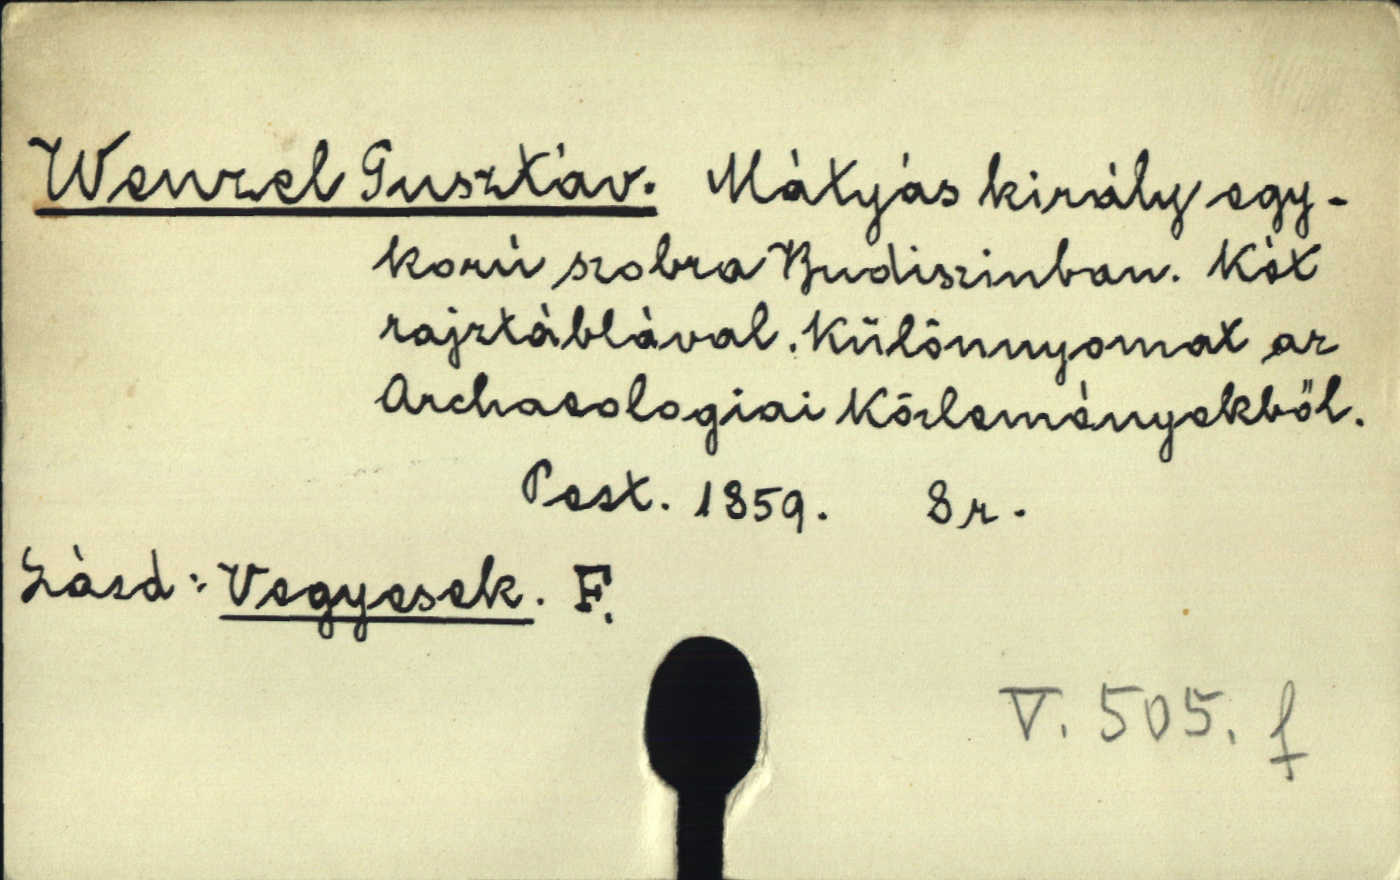 Wenzel Gusztáv. Mátyás király egy-
korú szobra Budiszinban. Két
rajztáblával. Különnyomat az
Archaeologiai Közleményekből.
Pest. 1859. 8 r.
Lásd: Vegyesek. F.
V. 505. f